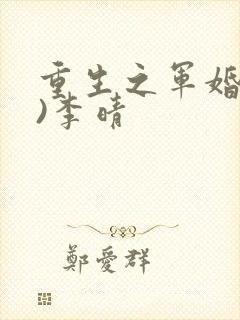 重生之军婚
)李晴
鄭愛群